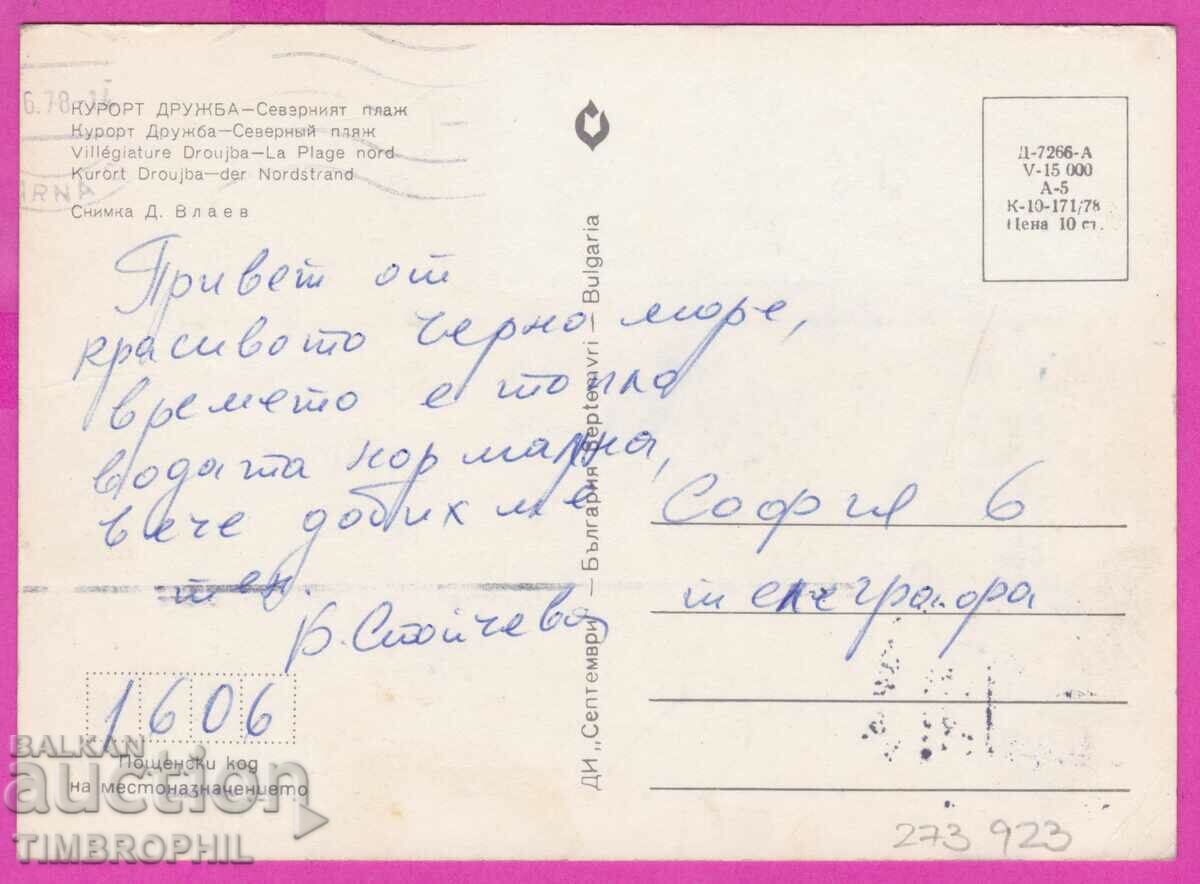 6.78-14
КУРОРТ ДРУЖБА—Северният плаж
Курорт Дружба—Северный пляж
Villégiature Droujba—La Plage nord
Kurort Droujba—der Nordstrand
Снимка Д. Влаев
Привет от
красивото Черно море,
времето е топло
водата нормална,
вече добихме
тен.
В. Стойчева
1606
Пощенски код
на местоназначението
ДИ „Септември" — България Septemvri — Bulgaria
Д-7266-А
V-15 000
А-5
К-10-171/78
Цена 10 ст.
София 6
телеграфа
273 923
BALKAN
auction
TIMBROPHIL